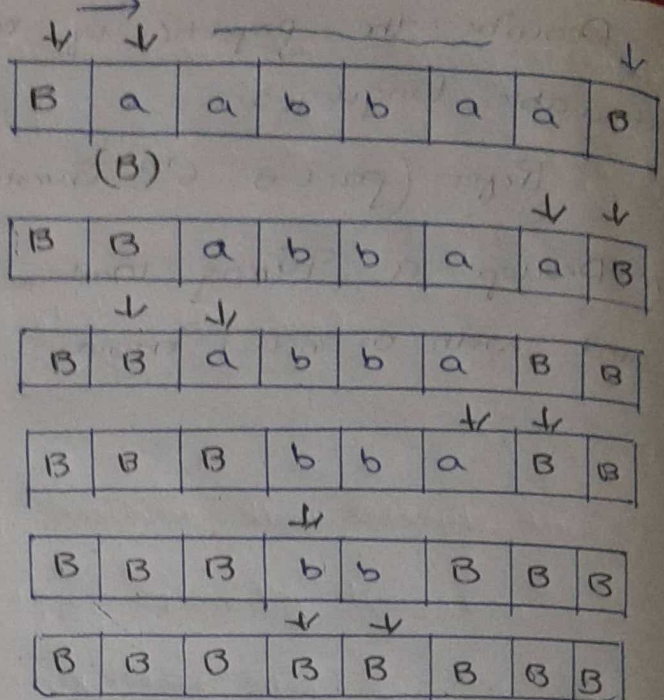 B a a b b a a B
(B)
B B a b b a a B
B B a b b a B B
B B B b b a B B
B B B b b B B B
B B B B B B B B